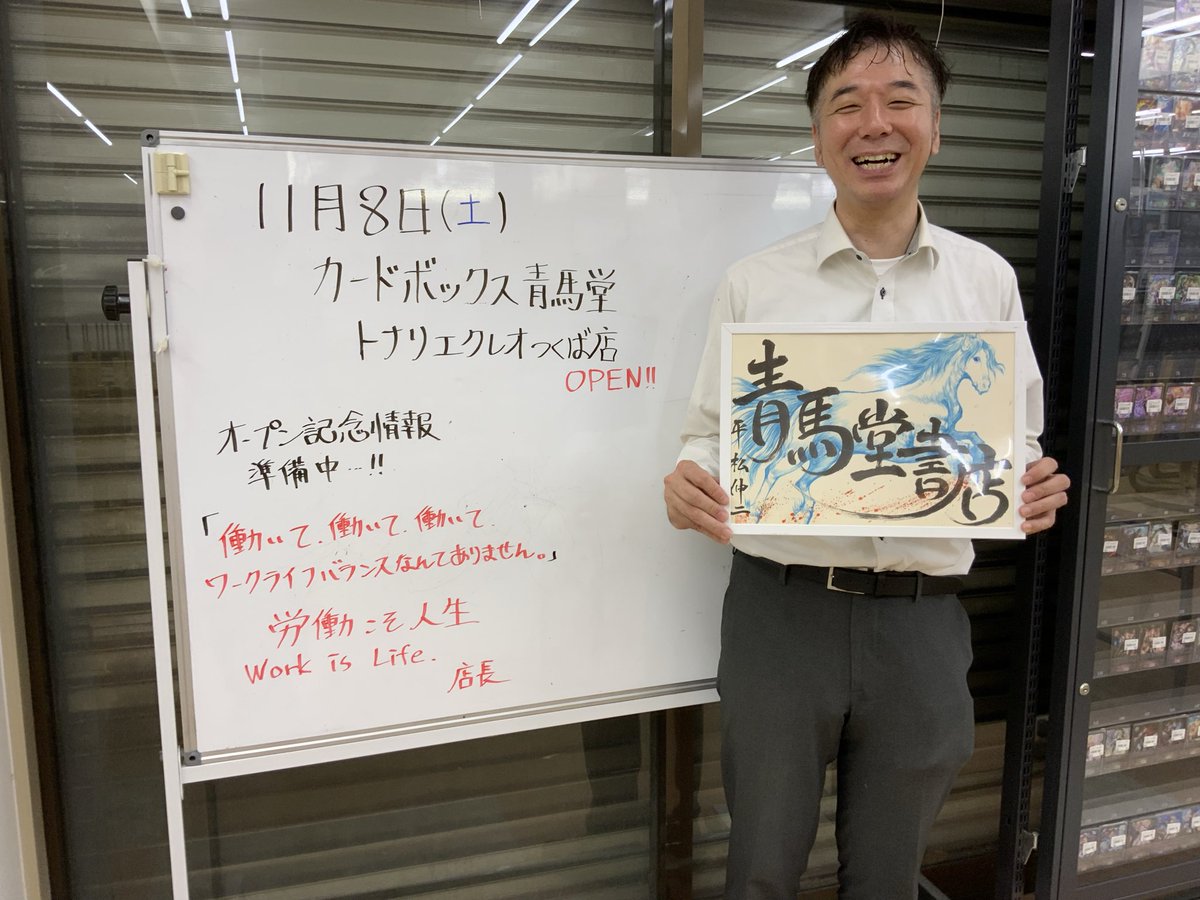 11月8日(土)
カードボックス青馬堂
トナリエクレオつくば店
OPEN!!
オープン記念情報
準備中…!!
「働いて、働いて、働いて、
ワークライフバランスなんてありません。」
労働こそ人生
Work is Life.
店長
青馬堂書店
平松伸二